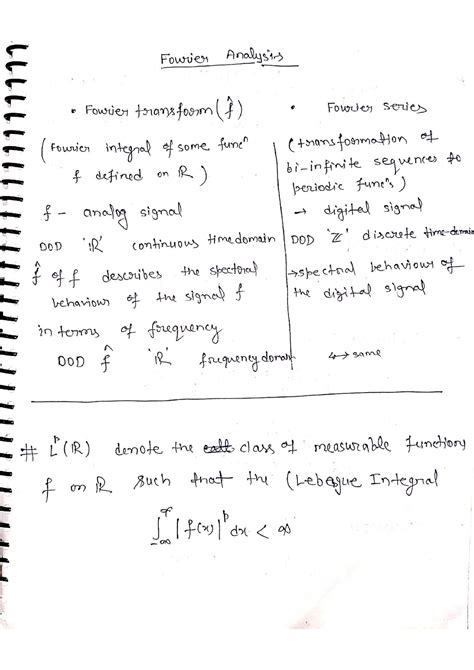 Fourier Analysis
• Fourier transform (f̂)
(Fourier integral of some funcⁿ
f defined on ℝ)
f - analog signal
DOD 'ℝ' continuous time domain
f̂ of f describes the spectral
behaviour of the signal f
in terms of frequency
DOD f̂ 'ℝ' frequency domain
• Fourier series
(transformation of
bi-infinite sequences to
periodic funcⁿs)
→ digital signal
DOD 'Z' discrete time-domain
→ spectral behaviour of
the digital signal
↔ same
# Lᵖ(ℝ) denote the class of measurable functions
f on ℝ such that the (Lebegue Integral
∫_{-∞}^{∞} |f(x)|ᵖ dx < ∞